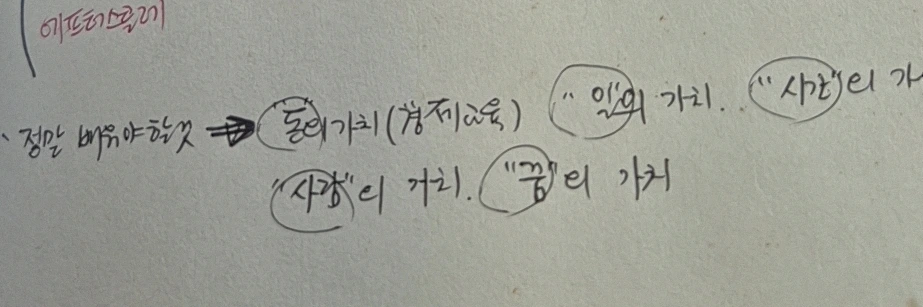 에프터스쿨레
정말 배워야할것 → 돈의 가치(경제교육) "일"의 가치. "시간"의 가
"사랑"의 가치. "꿈"의 가치